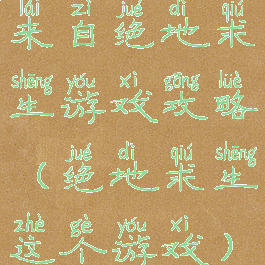 lái zì jué dì qiú
来自绝地求
shēng yóu xì gōng lüè
生游戏攻略
jué dì qiú shēng
（绝地求生
zhè gè yóu xì
这个游戏）